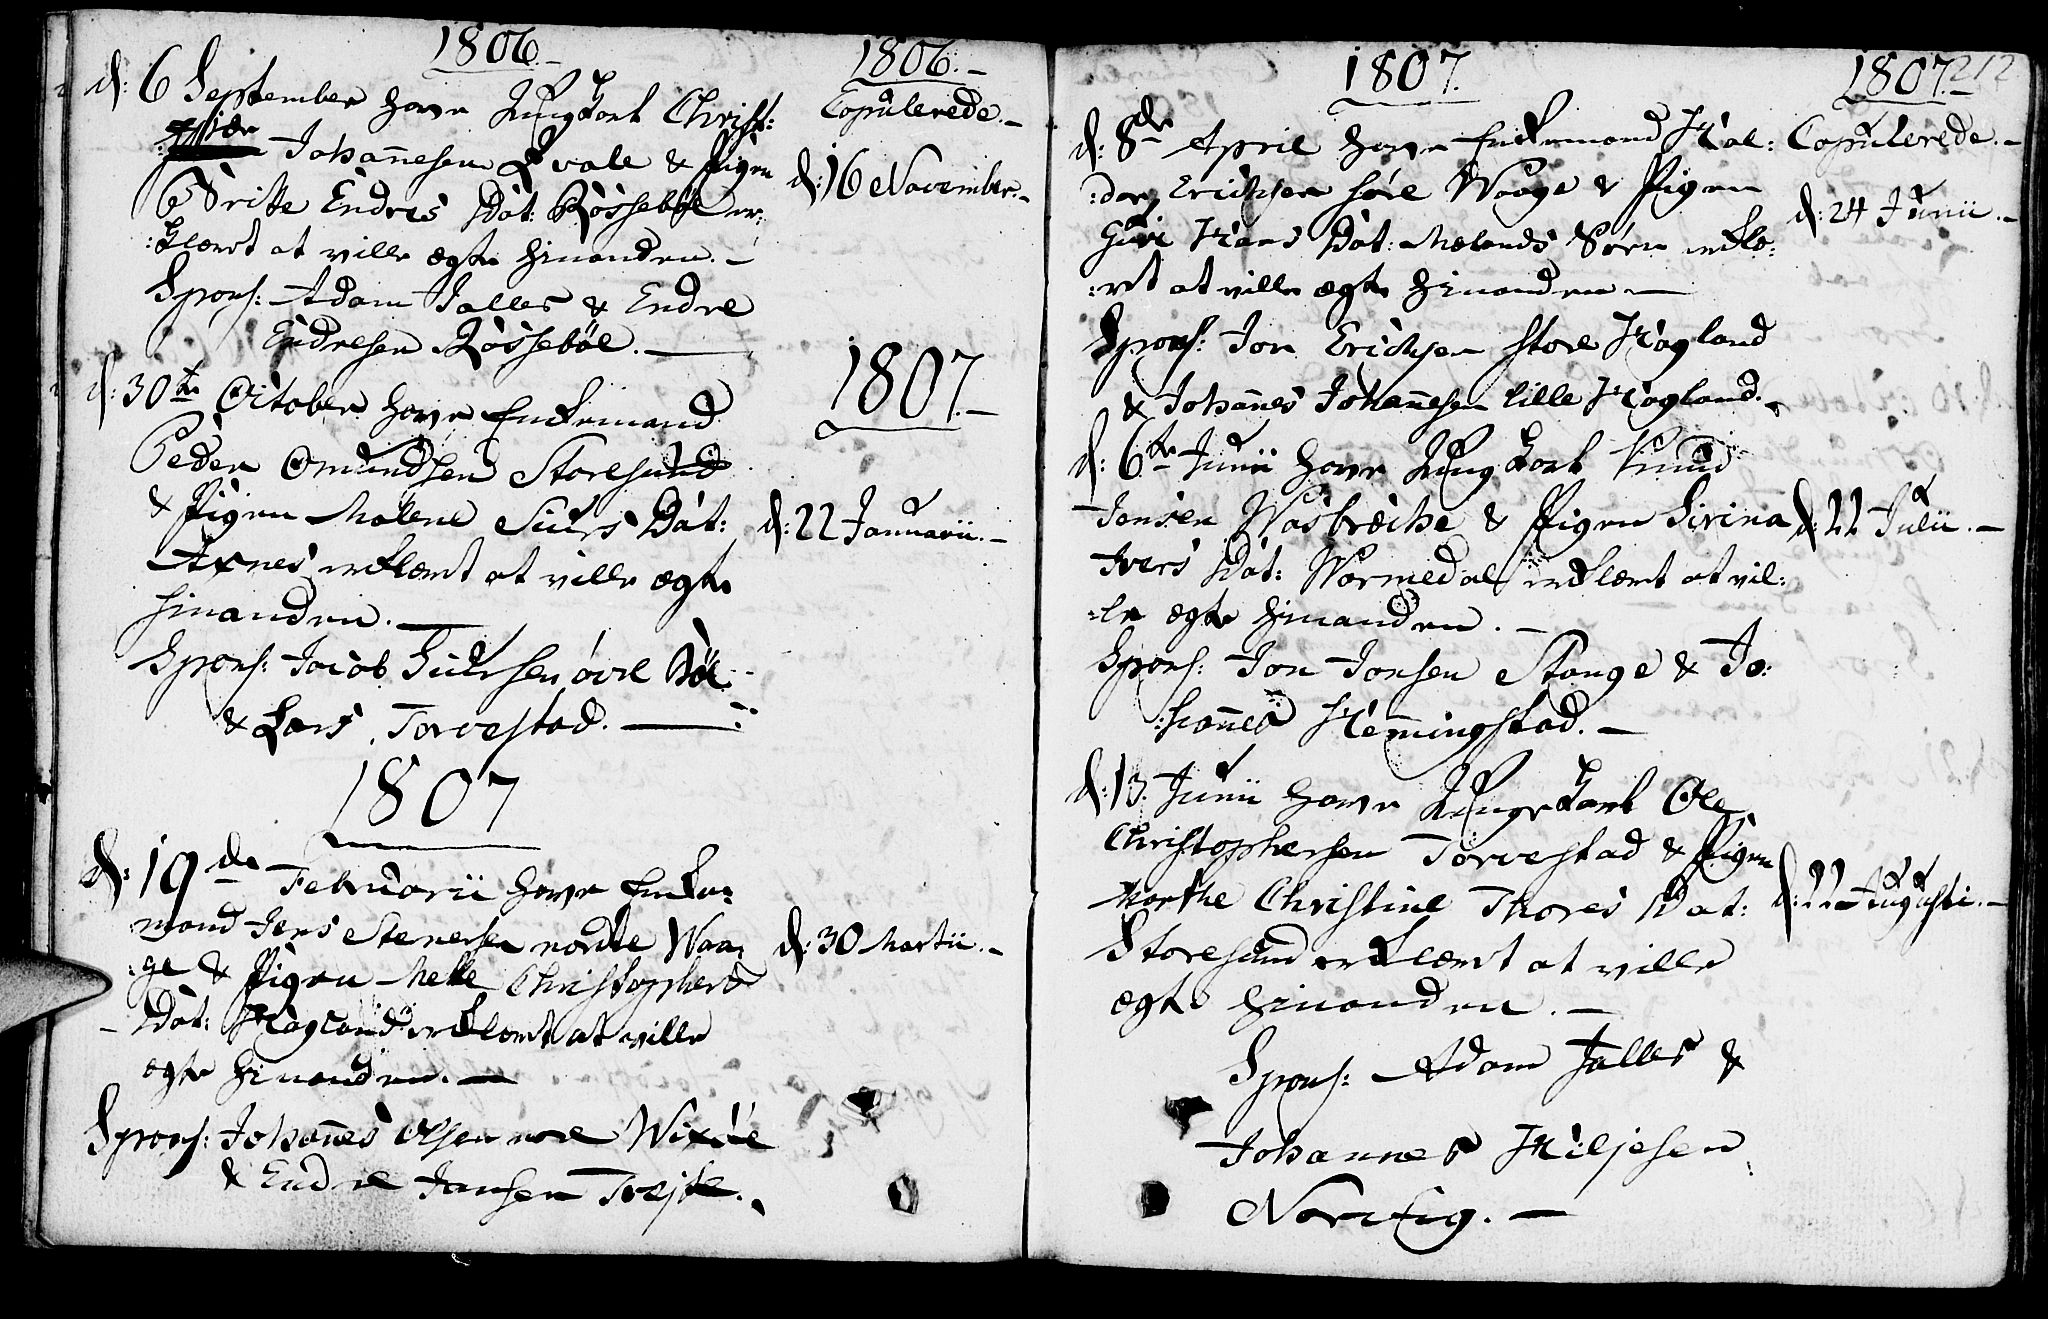 1806.-
d: 6 September have Ungkarl Christ:
:jan Johannesen Qvale & Pigen
Britte Endres Dat: Røssebøe er:
:klæret at ville ægte hinanden.-
Spons: Adam Jalles & Endre
Endresen Røssebøe.-
d: 30te October have Enkemand
Peder Omundsen Storesund
& Pigen Malene Siurs Dat:
Axnes erklæret at ville ægte
hinanden.-
Spons: Jacob Siursen øvre Bøe
& Lars Torvestad.-
1807
d: 19de Februarii have Enke:
mand Jens Stenersen nordre Waa:
:ge & Pigen Mette Christophers
Dat: Hagland erklæret at ville
ægte hinanden.-
Spons: Johannes Olsen nore Wixøe
& Endre Jansen
1806.-
Copulerede.-
d: 16 November.-
1807.-
d: 22 Januarii.-
d: 30 Martii.-
1807.
d: 8de April have Enkemand Hal:
:dor Erichsen søre Waage & Pigen
Guri Hans Dat: Mælands Søre erklæ:
:ret at ville ægte hinanden-
Spons: Jon Erichsen store Hagland
& Johannes Johannesen lille Hagland.-
d: 6te Junii have Ungkarl Knud
Jonsen Wasbrække & Pigen Sirina
Ivers Dat: Wormedal erklæret at vil:
:le ægte hinanden.-
Spons: Jon Jonsen Stange & Jo:
:hannes Hemmingstad.-
d: 13 Junii have Ungekarl Ole
Christophersen Torvestad & Pigen
Marthe Christine Thores Dat:
Storesund erklæret at ville
ægte hinanden.-
Spons: Adam Jalles &
Johannes Hiljesen
Noreig.-
1807.- 212
Copulerede.-
d: 24 Junii.-
d: 22 Julii.-
d: 22 Augusti.-